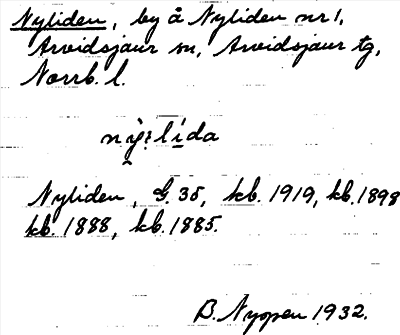 Nyliden, by å Nyliden nr 1,
Arvidsjaur sn, Arvidsjaur tg,
Norrb. l.
nỳ:lída
Nyliden, G. 35, kb. 1919, kb. 1898
kb. 1888, kb. 1885.
B. Nyopen 1932.